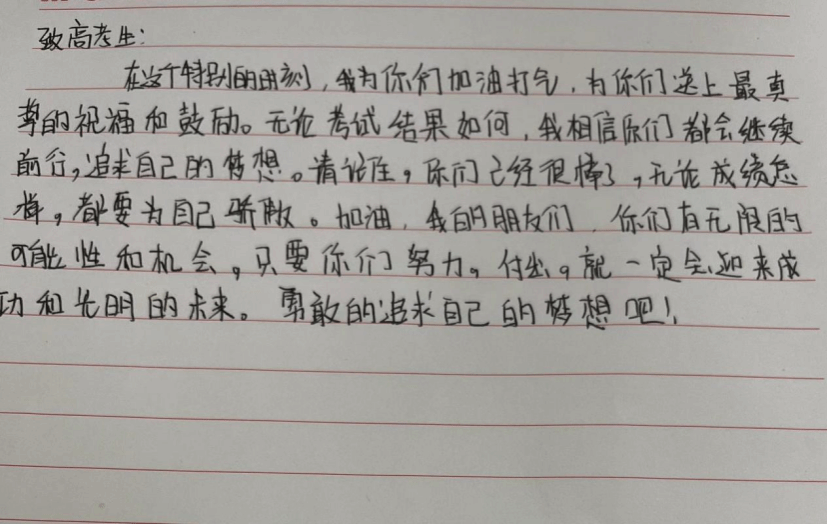 致高考生:
在这个特别的时刻,我为你们加油打气,为你们送上最真
挚的祝福和鼓励。无论考试结果如何,我相信你们都会继续
前行,追求自己的梦想。请记住,你们已经很棒了,无论成绩怎
样,都要为自己骄傲。加油,我的朋友们,你们有无限的
可能性和机会,只要你们努力。付出。就一定会迎来成
功和光明的未来。勇敢的追求自己的梦想吧!